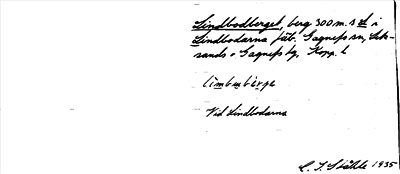 Lindbodberget, berg 300 m. s ul i
Lindbodarna fäb. Gagnefs sn, Lek-
sands o Gagnefs tg, Kopp. l
limbubärge
Vid Lindbodarna
C. I. Ståhle 1935